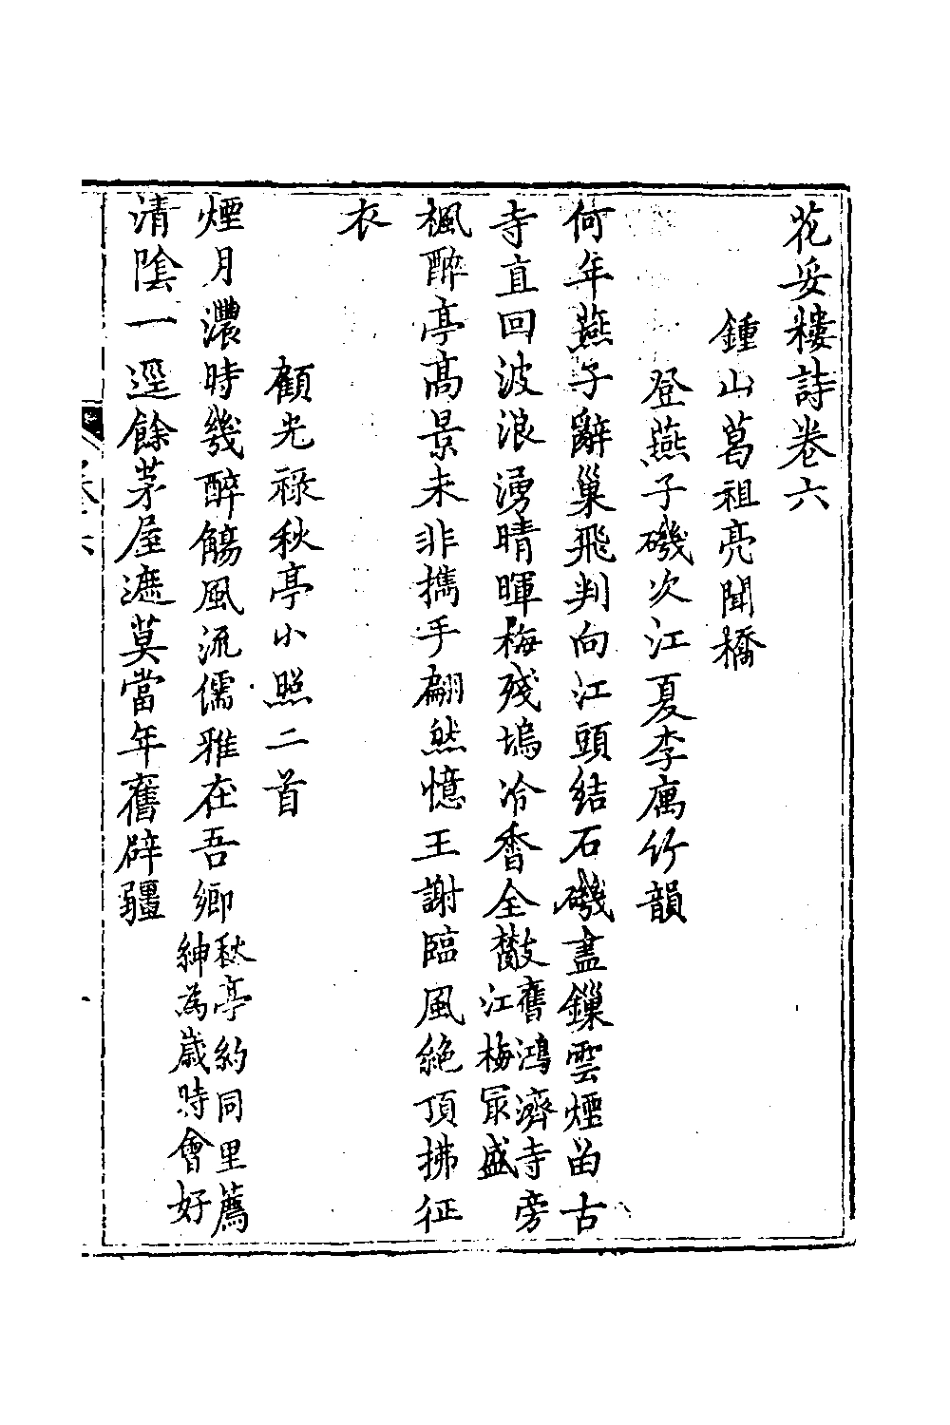 花妥樓詩卷六
鍾山葛祖亮聞橋
登燕子磯次江夏李厲竹韻
何年燕子辭巢飛判向江頭結石磯盡鏁雲煙畄古
寺直回波浪湧晴暉梅殘塢冷香全散舊鴻濟寺旁江梅㝡盛
楓醉亭高景未非攜手翩然憶王謝臨風絶頂拂征
衣
顧光祿秋亭小照二首
煙月濃時幾醉觴風流儒雅在吾鄉秋亭約同里薦紳為歲時會好
清陰一逕餘茅屋遮莫當年舊辟疆